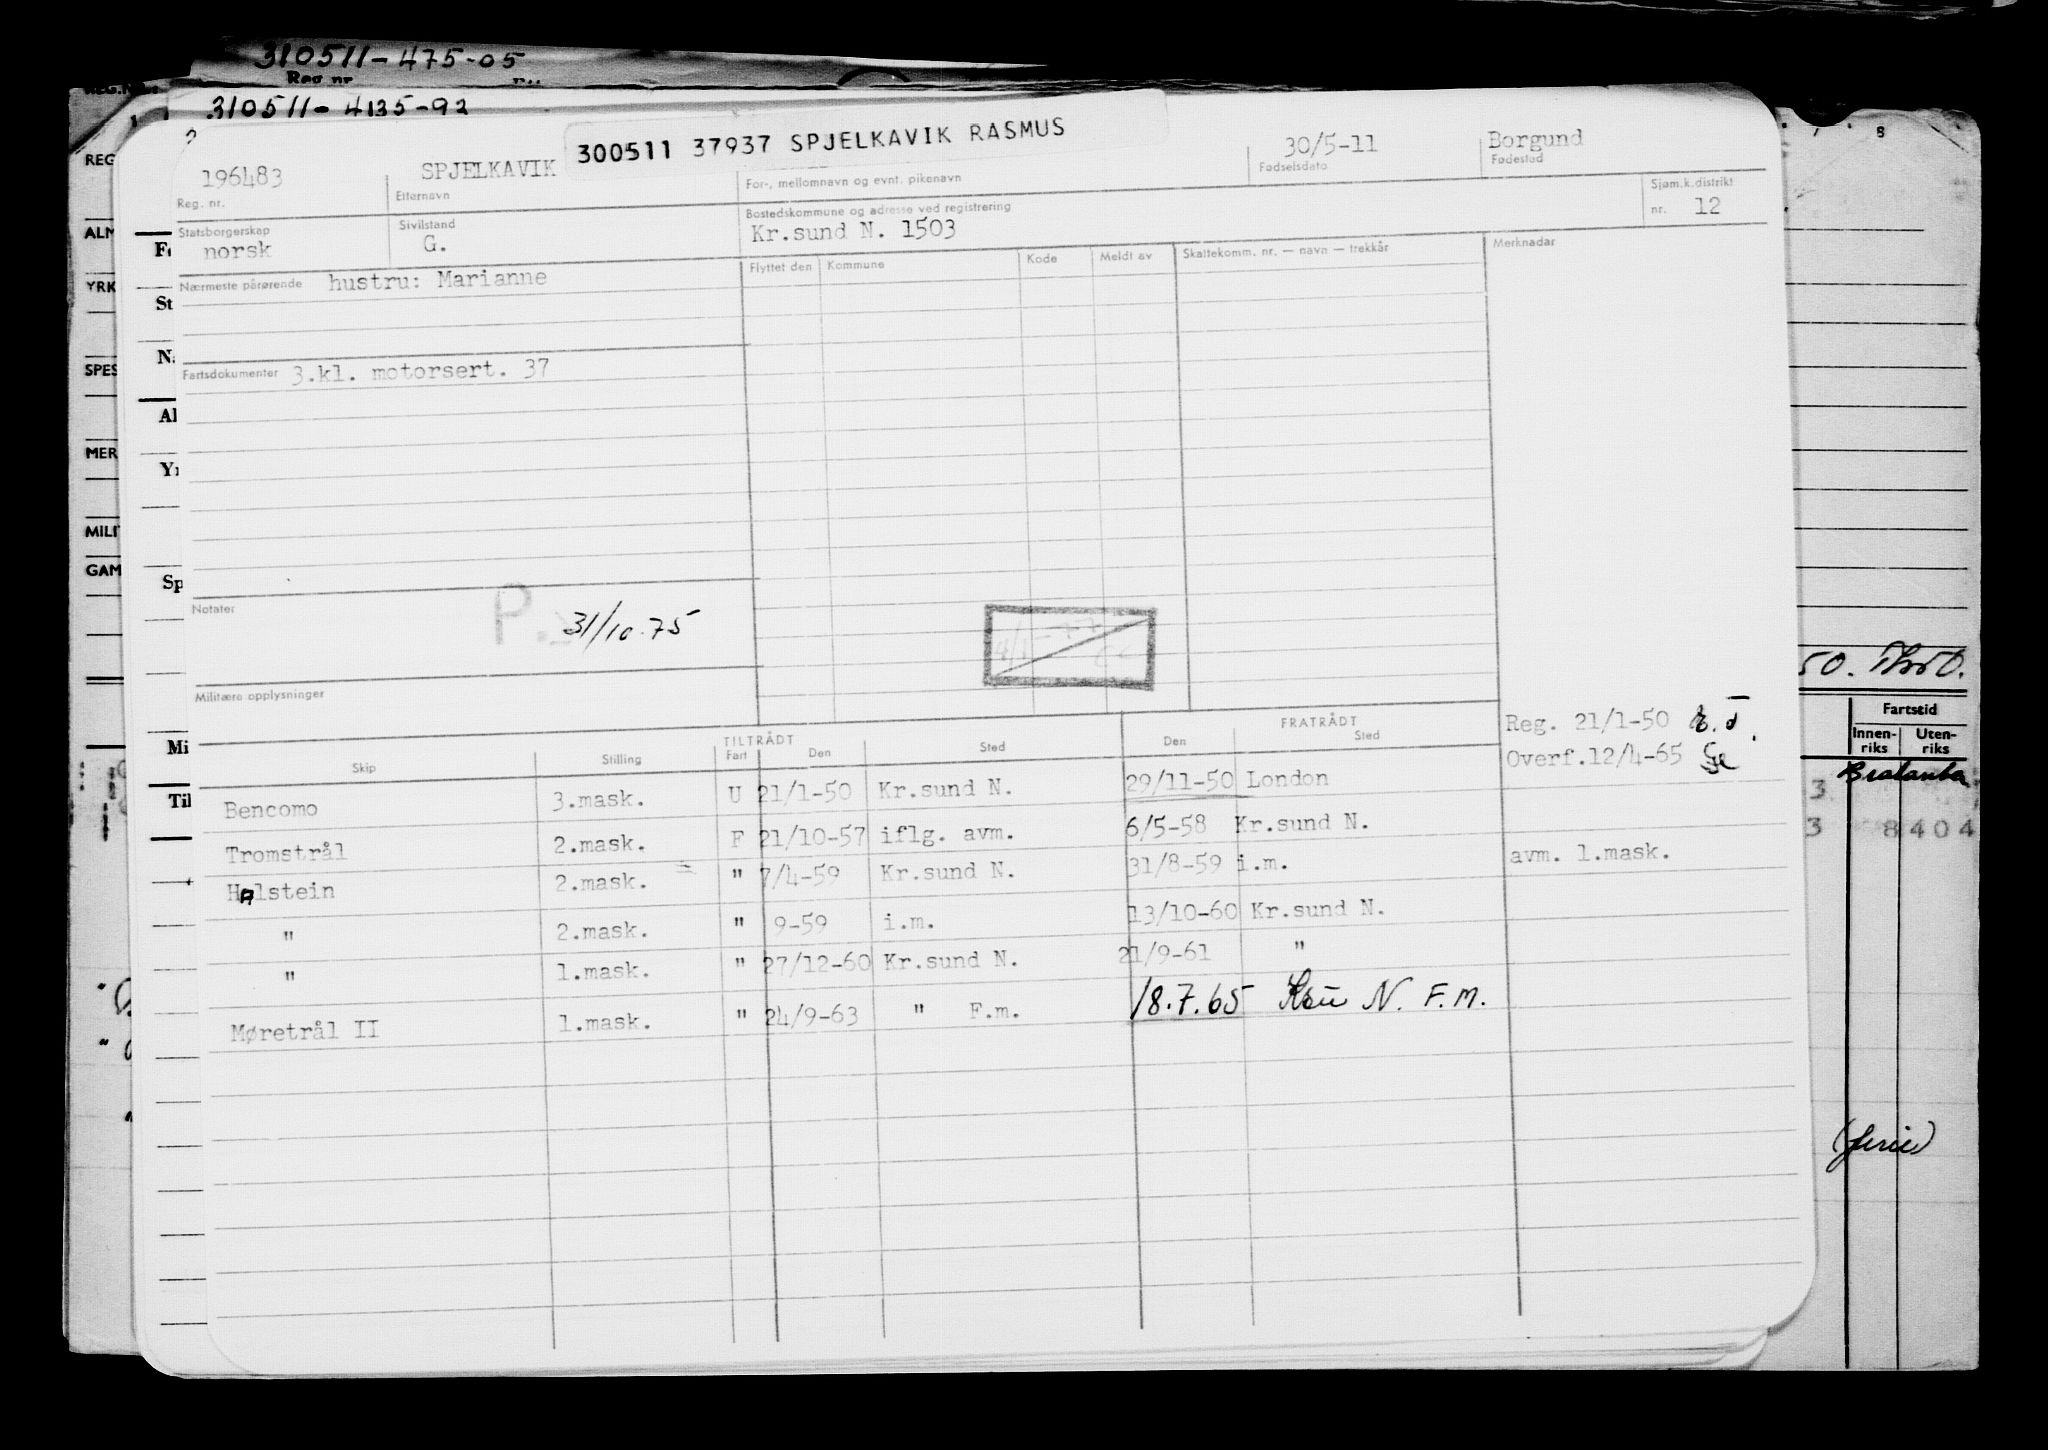 310511-475-05
Reg. nr.
310511-4135-92
300511 37937 SPJELKAVIK RASMUS
196483 SPJELKAVIK 30/5-11 Borgund
Reg. nr. Etternavn For-, mellomnavn og evnt. pikenavn Fødselsdato Fødested
Statsborgerskap Sivilstand Bostedskommune og adresse ved registrering Sjøm.k.distrikt
norsk G. Kr.sund N. 1503 nr. 12
Nærmeste pårørende hustru: Marianne Flyttet den Kommune Kode Meldt av Skattekomm. nr. — navn — trekkår Merknader
Fartsdokumenter 3.kl. motorsert. 37
Notater P. 31/10.75
Militære opplysninger
TILTRÅDT FRATRÅDT Reg. 21/1-50
Skip Stilling Fart Den Sted Den Sted Overf.12/4-65
Bencomo 3.mask. U 21/1-50 Kr.sund N. 29/11-50 London
Tromstrål 2.mask. F 21/10-57 iflg. avm. 6/5-58 Kr.sund N.
Halstein 2.mask. " 7/4-59 Kr.sund N. 31/8-59 i.m. avm. 1.mask.
" 2.mask. " 9-59 i.m. 13/10-60 Kr.sund N.
" 1.mask. " 27/12-60 Kr.sund N. 21/9-61 "
Møretrål II 1.mask. " 24/9-63 " F.m. 18.7.65 Ksu N. F.M.
REG
ALM
YRK
SPES
MER
MILIT
GAM
St
Al
Sp
Mi
Til
8
50.
Fartstid
Innen-riks Uten-riks
3
3 8404
(ferie)